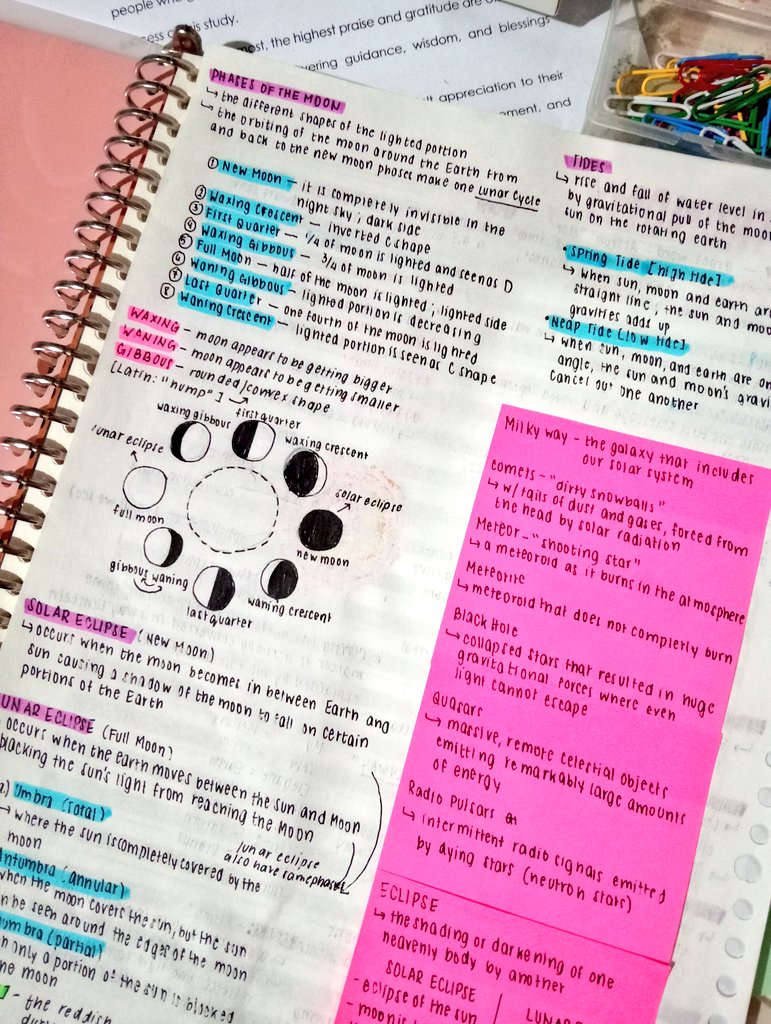 people who
success of this study.
most, the highest praise and gratitude are
guidance, wisdom, and blessings
appreciation to their
and
PHASES OF THE MOON
↳ the different shapes of the lighted portion
↳ the orbiting of the moon around the Earth from
and back to the new moon phases make one lunar cycle
① New Moon – it is completely invisible in the
night sky ; dark side
② Waxing Crescent – inverted C shape
③ First Quarter – 1/4 of moon is lighted and seen as D
④ Waxing Gibbous – 3/4 of moon is lighted
⑤ Full Moon – half of the moon is lighted ; lighted side
⑥ Waning Gibbous – lighted portion is decreasing
⑦ Last Quarter – one fourth of the moon is lighted
⑧ Waning Crescent – lighted portion is seen as C shape
WAXING – moon appears to be getting bigger
WANING – moon appears to be getting smaller
GIBBOUS – rounded/convex shape
[Latin: "hump"]
waxing gibbous
first quarter
waxing crescent
lunar eclipse
solar eclipse
full moon
new moon
gibbous waning
last quarter
waning crescent
SOLAR ECLIPSE (New Moon)
↳ occurs when the moon becomes in between Earth and
sun causing a shadow of the moon to fall on certain
portions of the Earth
LUNAR ECLIPSE (Full Moon)
occurs when the earth moves between the sun and Moon
blacking the sun's light from reaching the Moon
lunar eclipse
also have same phases
Umbra (total)
→ where the sun is completely covered by the
moon
Antumbra (annular)
when the moon covers the sun, but the sun
be seen around the edges of the moon
(partial)
only a portion of the sun is blocked
moon
– the reddish
TIDES
↳ rise and fall of water level in
by gravitational pull of the
sun on the rotating earth
• Spring Tide [high tide]
↳ when sun, moon and earth
straight line ; the sun and
gravities adds up
• Neap Tide [low tide]
↳ when sun, moon, and earth are
angle, the sun and moon's
cancel out one another
Milky way – the galaxy that includes
our solar system
comets – "dirty snowballs"
↳ w/ tails of dust and gases, forced from
the head by solar radiation
Meteor – "shooting star"
↳ a meteoroid as it burns in the atmosphere
Meteorite
↳ meteoroid that does not completly burn
Black Hole
↳ collapsed stars that resulted in huge
gravitational forces where even
light cannot escape
Quasars
↳ massive, remote celestial objects
emitting remarkably large amounts
of energy
Radio Pulsars
↳ intermittent radio signals emitted
by dying stars (neutron stars)
ECLIPSE
↳ the shading or darkening of one
heavenly body by another
SOLAR ECLIPSE
- eclipse of the sun
- moon is